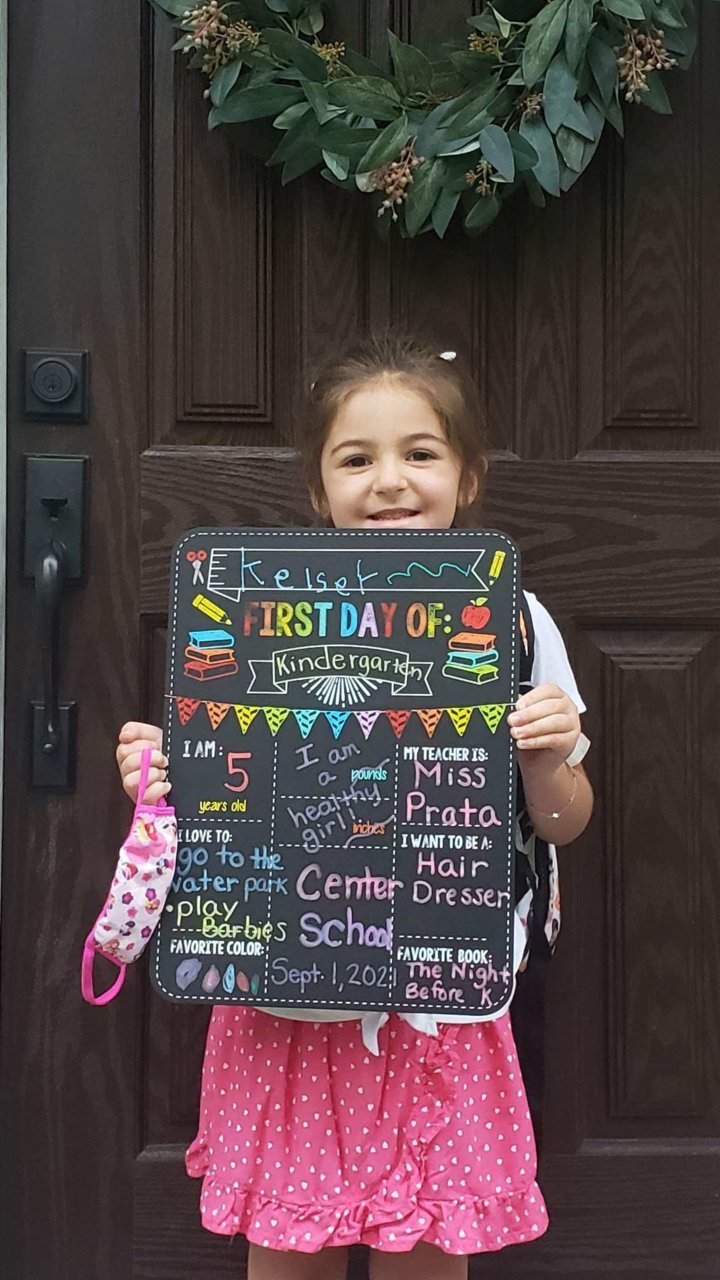 Kelsey
FIRST DAY OF:
Kindergarten
I AM:
5
years old
I LOVE TO:
go to the
water park
• play
Barbies
FAVORITE COLOR:
I am
a pounds
healthy
girl! inches
Center
School
Sept. 1, 2021
MY TEACHER IS:
Miss
Prata
I WANT TO BE A:
Hair
Dresser
FAVORITE BOOK:
The Night
Before K